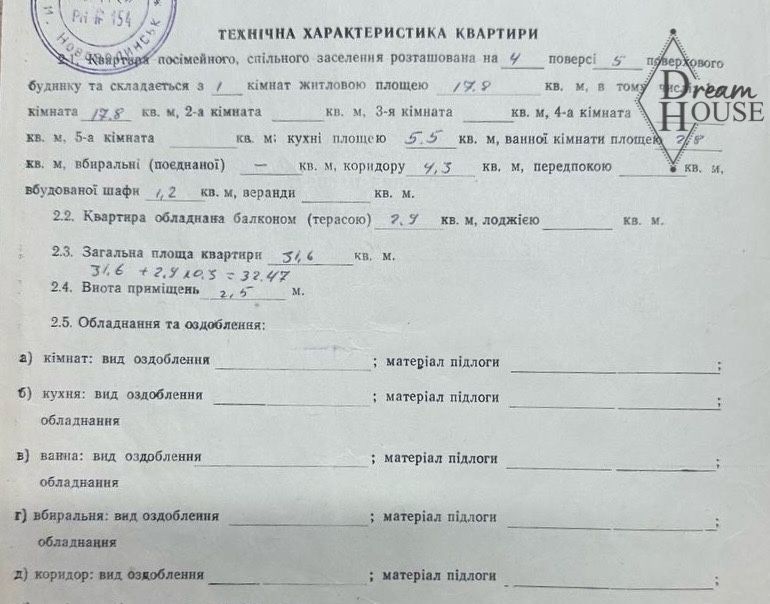 Рп № 154
м. Новодолинськ *
Dream
HOUSE
ТЕХНІЧНА ХАРАКТЕРИСТИКА КВАРТИРИ
2.1. Квартира посімейного, спільного заселення розташована на 4 поверсі 5 поверхового
будинку та складається з 1 кімнат житловою площею 17.8 кв. м, в тому числі
кімната 17.8 кв. м, 2-а кімната кв. м, 3-я кімната кв. м, 4-а кімната
кв. м, 5-а кімната кв. м; кухні площею 5.5 кв. м, ванної кімнати площею 2,8
кв. м, вбиральні (поєднаної) — кв. м, коридору 4,3 кв. м, передпокою кв. м,
вбудованої шафи 1,2 кв. м, веранди кв. м.
2.2. Квартира обладнана балконом (терасою) 2,9 кв. м, лоджією кв. м.
2.3. Загальна площа квартири 31,6 кв. м.
31.6 + 2,9 х0.3 = 32.47
2.4. Виота приміщень 2,5 м.
2.5. Обладнання та оздоблення:
а) кімнат: вид оздоблення ; матеріал підлоги ;
б) кухня: вид оздоблення ; матеріал підлоги ;
обладнання
в) ванна: вид оздоблення ; матеріал підлоги ;
обладнання
г) вбиральня: вид оздоблення ; матеріал підлоги ;
обладнання
д) коридор: вид оздоблення ; матеріал підлоги ;